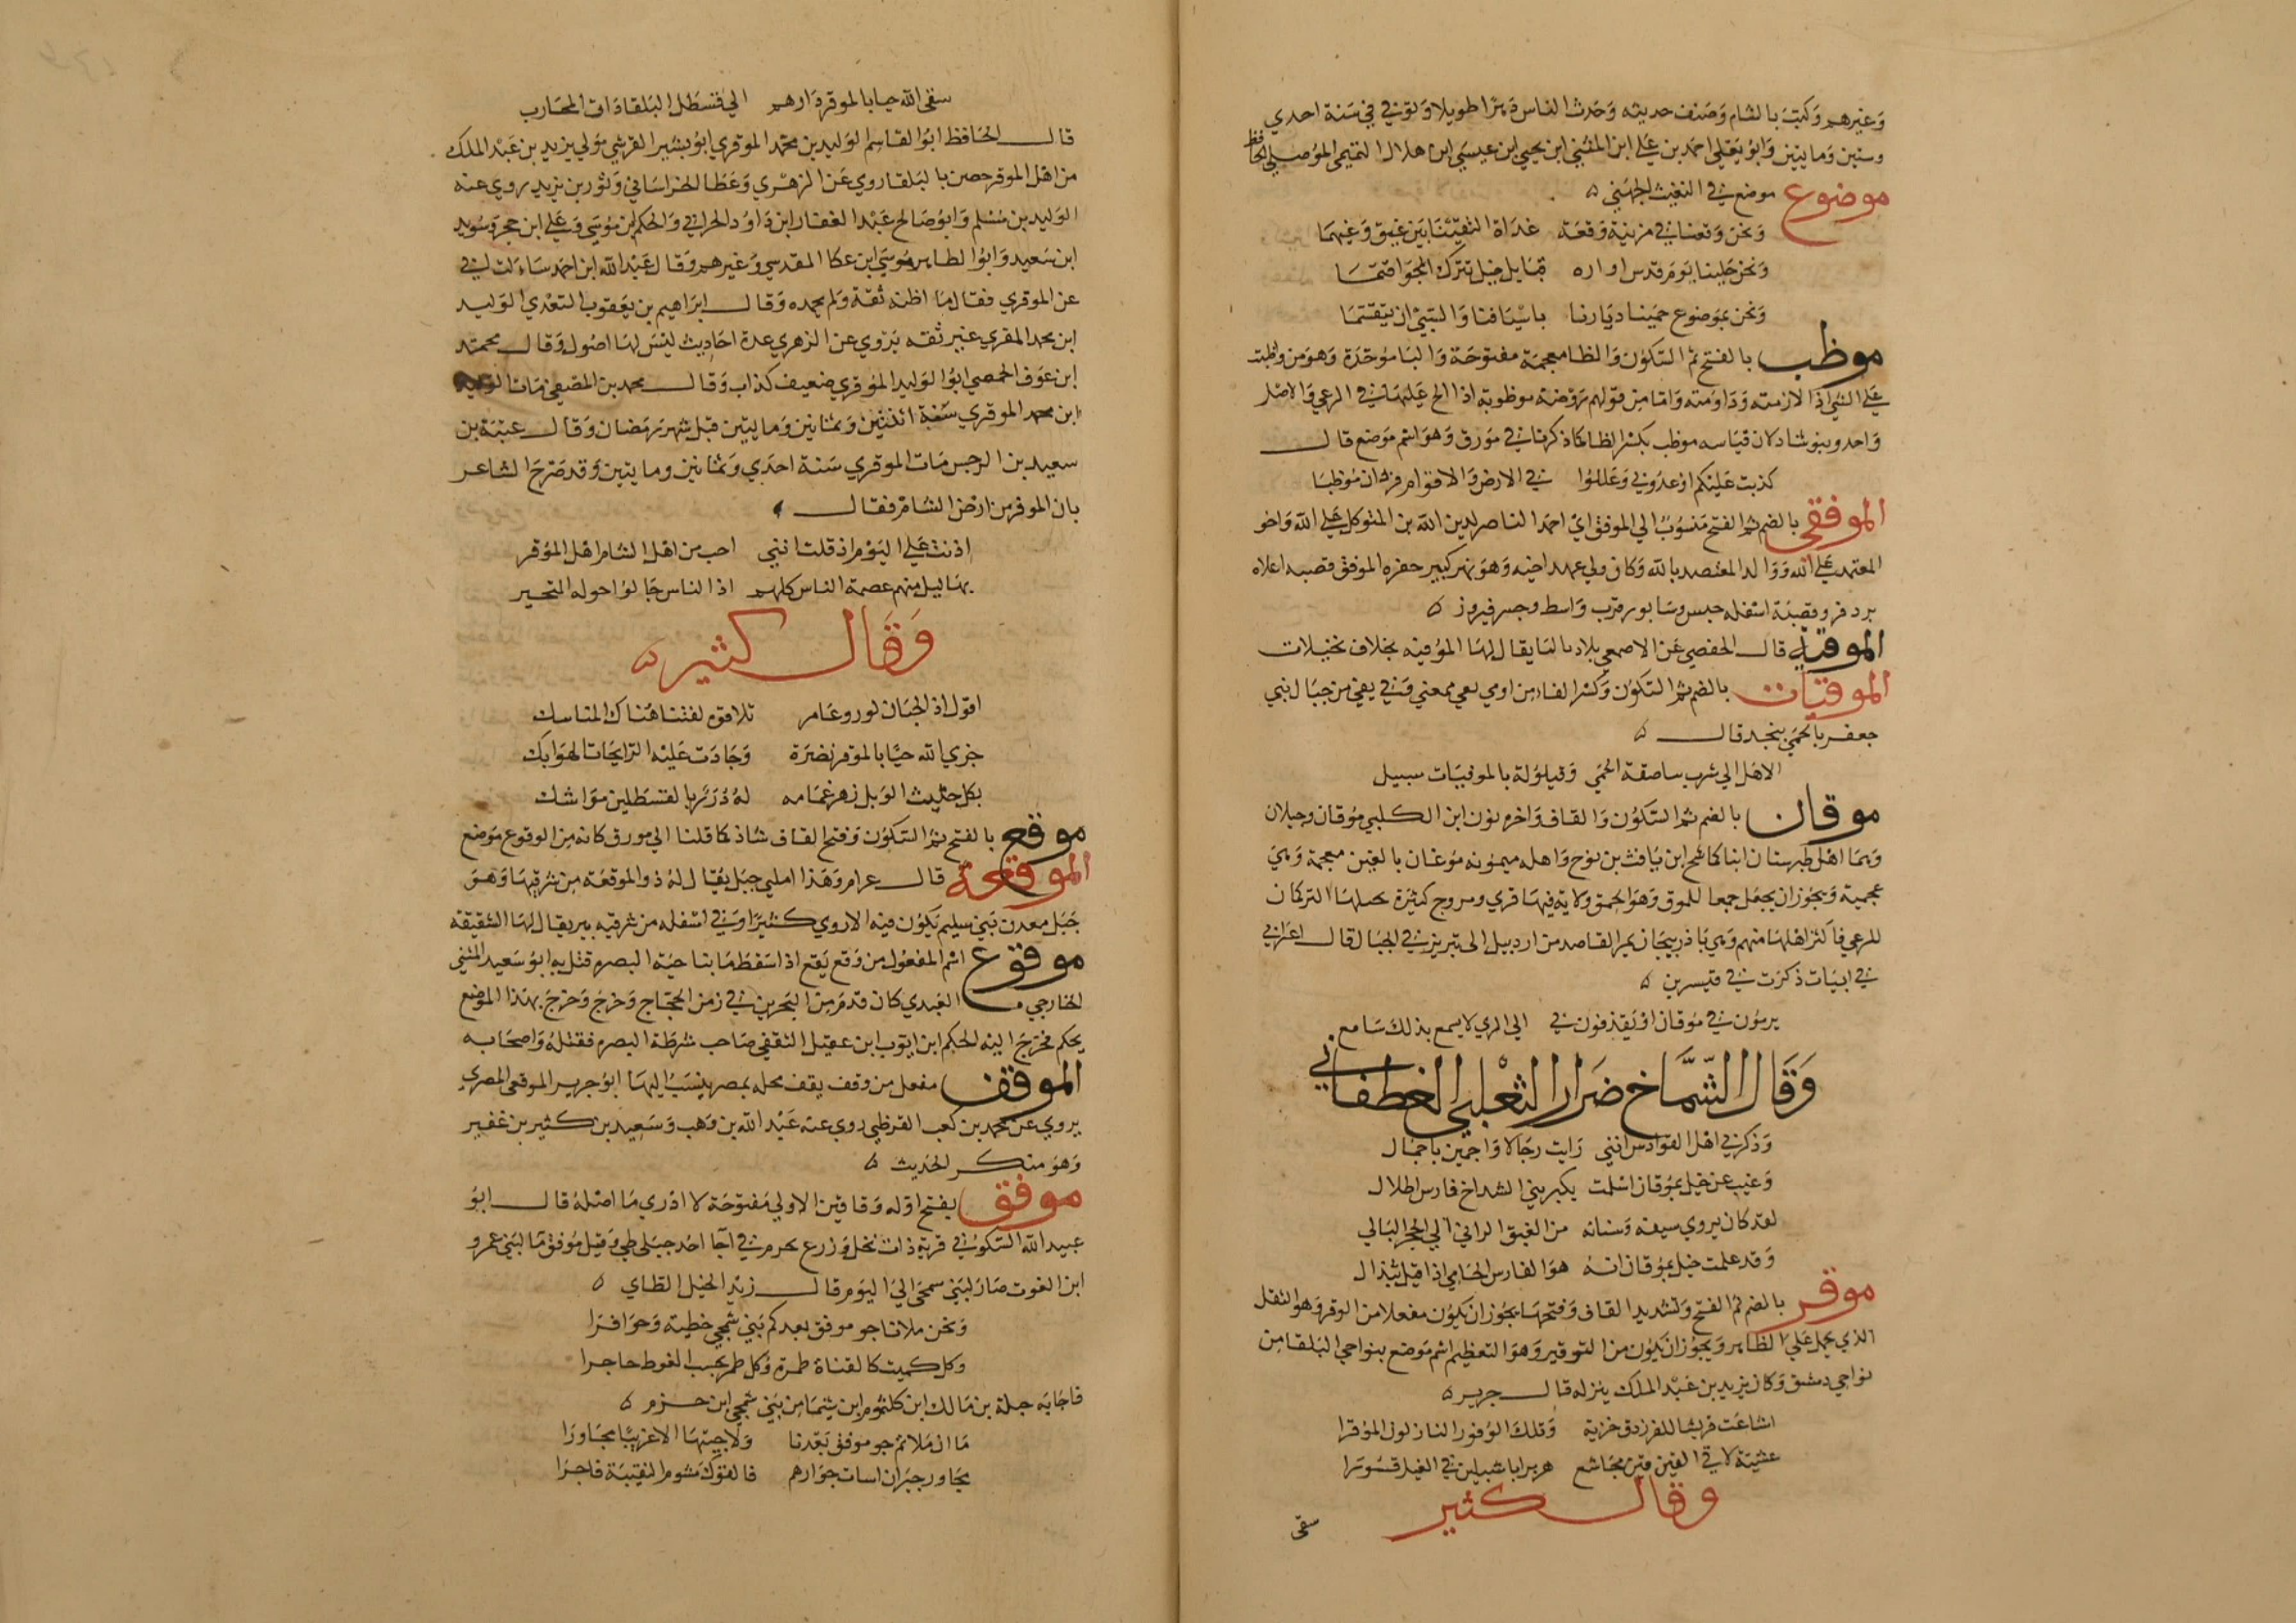 وغيرهم وكتب بالشام وصنف حديثه وحدث الناس دهرا طويلا وتوفي في سنة احدي
وستين ومايتين وابو يعلي احمد بن علي ابن المثني ابن يحيي ابن عيسي ابن هلال التميمي الموصلي الحافظ
موضوع موضع في البغيث الجهني ه
ونحن وقعنا في مزينة وقعة غداة التقينا بين غيق وغيهما
ونحن جلبنا يوم قدس اواره قبايل خيل تترك الجو اقتما
ونحن بموضوع حمينا ديارنا باسيافنا والسبي ان يتقسما
موظب بالفتح ثم السكون والظا معجمة مفتوحة والبا موحدة وهو من واظبت
علي الشي اذا لازمته وداومته واما من قولهم روضة موظوبة اذا الح عليها في الرعي والاصل
واحد وهو شاد لان قياسه موظب بكسر الظا كما ذكرنا في مورق وهو اسم موضع قال
كذبت عليكم اوعدوني وعللوا في الارض والاقوام قردان موظبا
الموفقي بالضم ثم الفتح منسوب الي الموفق ابي احمد الناصر لدين الله بن المتوكل علي الله واخو
المعتمد علي الله ووالد المعتضد بالله وكان ولي عهد اخيه وهو نهر كبير حفره الموفق قصبه اعلاه
بردفر وقصبة اسفله جبس وسابور قرب واسط وجسر فيروز ه
الموفية قال الحفصي عن الاصمعي بلادنا لنا يقال لها الموفية بخلاف نخيلات
الموفيات بالضم ثم السكون وكسر الفا من اومي يعي بمعني وفي يفي من جبال بني
جعفر بالحمي بنجد قال ه
الا هل الي شرب بناصفة الحمي وقيلولة بالموفيات سبيل
موقان بالضم ثم السكون والقاف واخره نون ابن الكلبي موقان وجيلان
وهما اهل طبرستان ابنا كماشح ابن يافث بن نوح واهله يسمونه موغان بالغين معجمة وهي
عجمية ويجوز ان يجعل جمعا للموق وهو الحمق ولاية فيها قري ومروج كثيرة تحتلها التركمان
للرعي فاكثر اهلها منهم وهي باذربيجان يمر القاصد من اردبيل الي تبريز في الجبال قال اعرابي
في ابيات ذكرت في قيسرين ه
يرمون في موقان او يقذفون في الي الري لا يسمع بذلك سامع
وقال الشماخ ضرار الثعلبي الغطفاني
وذكرني اهل القوادس انني رايت رجالا واجمين باجمال
وغيب عن خيل بموقان اسلمت بكير بني الشداخ فارس اطلال
لقد كان يروي سيفه وسنانه من الغبق الراني الي الحجر البالي
وقد علمت خيل بموقان انه هو الفارس الحامي اذا قيل تنزال
موقر بالضم ثم الفتح وتشديد القاف وفتحها يجوز ان يكون مفعلا من الوقر وهو الثقل
الذي يحمل علي الظهر ويجوز ان يكون من التوقير وهو التعظيم اسم موضع بنواحي البلقا من
نواحي دمشق وكان يزيد بن عبد الملك ينزله قال جرير ه
اشاعت قريشا للفرزدق خزية وتلك الوفود النازلون الموقرا
عشية لاقي القين قين مجاشع هزبرا ابا شبلين في الغيل قسورا
وقال كثير
سقي
سقي الله حيا بالموقر دارهم الي قسطل البلقا ذات المحارب
قال الحافظ ابو القاسم الوليد بن محمد الموقري ابو بشير القرشي مولي يزيد بن عبد الملك
من اهل الموقر حصن بالبلقا روي عن الزهري وعطا الخراساني وثور بن يزيد روي عنه
الوليد بن مسلم وابو صالح عبد الغفار ابن داود الحراني والحكم بن موسي وعلي ابن حجر وسويد
ابن سعيد وابو الطاهر موسي ابن عكا المقدسي وغيرهم وقال عبد الله ابن احمد ساءلت ابي
عن الموقري فقال ما اظنه ثقة ولم يحمده وقال ابراهيم بن يعقوب السعدي الوليد
ابن محمد المقري غير ثقه يروي عن الزهري عدة احاديث ليس لها اصول وقال محمد
ابن عوف الحمصي ابو الوليد الموقري ضعيف كذاب وقال محمد بن المصفي مات الوليد
ابن محمد الموقري سنة اثنتين وثمانين ومايتين قبل شهر رمضان وقال عتبة بن
سعيد بن الرحس مات الموقري سنة احدي وثمانين ومايتين وقد صرح الشاعر
بان الموقر من ارض الشام فقال ه
اذنت علي اليوم اذ قلت انني احب من اهل الشام اهل الموقر
بهاليل منهم عصمة الناس كلهم اذا الناس جالوا حوله المتحير
وقال كثير ه
اقول اذ الحيان نور وعامر تلاقوه لفتنا هناك المناسك
جزي الله حيا بالموقر نضرة وجادت عليه الرايحات الهوابك
بكل حثيث الوبل زهر غمامه له درر بالقسطلين مواشك
موقع بالفتح ثم السكون وفتح القاف شاذ كما قلنا الي مورق كانه من الوقوع موضع
الموقعة قال عرام وهذا املي جبل يقال له ذو الموقعة من شرقيها وهو
جبل معدن بني سليم يكون فيه الاروي كثيرا وفي اسفله من شرقيه بير يقال لها الشقيقه
موقوع اسم المفعول من وقع يقع اذا سقط ما بناحية البصره قتل به ابو سعيد المثني
الخارجي العبدي كان قدم من البحرين في زمن الحجاج وخرج وخرج بهذا الموضع
يحكم فخرج اليه الحكم ابن ايوب ابن عقيل الثقفي صاحب شرطة البصره فقتله واصحابه
الموقف مفعل من وقف يقف محلة بمصر ينسب اليها ابو جرير الموقفي المصري
يروي عن محمد بن كعب القرظي روي عنه عبد الله بن وهب وسعيد بن كثير بن غفير
وهو منكر الحديث ه
موقق بفتح اوله وقافين الاولي مفتوحة لا ادري ما اصله قال ابو
عبيد الله السكوني قرية ذات نخل وزرع بحرم في اجا احد جبلي طي وقيل موفق ما لبني عمرو
ابن الغوث صار لبني سمحي الي اليوم قال زيد الخيل الطاي ه
ونحن ملانا جو موفق بعدكم بني شمجي خطيه وحوافرا
وكل كميت كالقناة طمرة وكل طمر يحسب الغوط حاجرا
فاجابه جبلة بن مالك ابن كلثوم ابن شيما من بني شمجي ابن حزم ه
ما ان ملاتم جو موفق بعدنا ولاجيتها الا غريبا مجاورا
تجاور جيران اسات جوارهم فالفوك مشوم النقيبة فاجرا